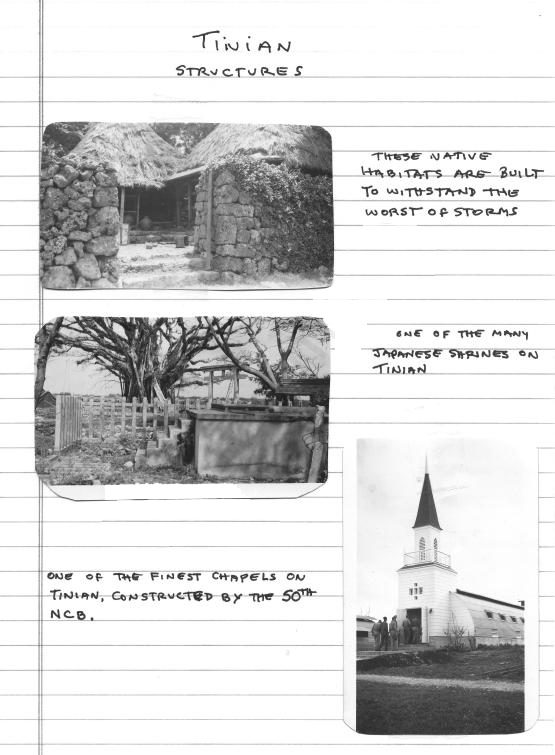 TINIAN
STRUCTURES
THESE NATIVE
HABITATS ARE BUILT
TO WITHSTAND THE
WORST OF STORMS
ONE OF THE MANY
JAPANESE SHRINES ON
TINIAN
ONE OF THE FINEST CHAPELS ON
TINIAN, CONSTRUCTED BY THE 50TH
NCB.